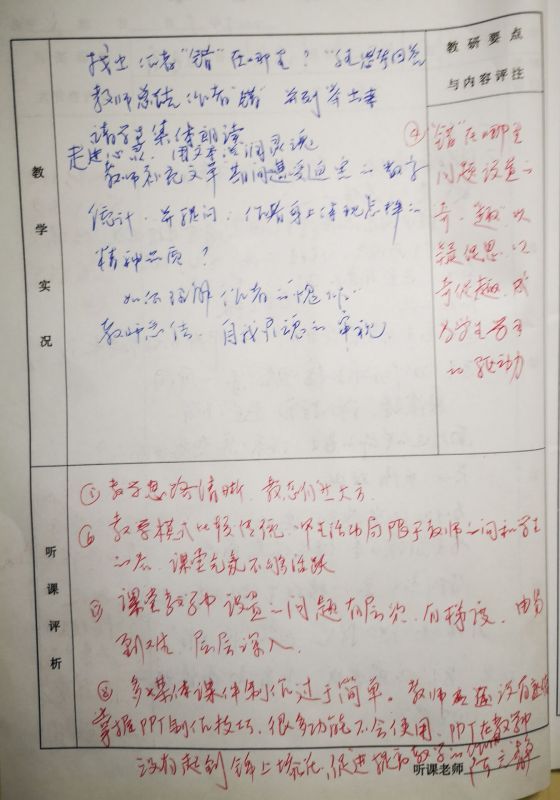 教学实况
找出作者"错"在哪里？"学生思考回答
教师总结作者"错" 并列举出来
请学生集体朗读
走进心灵：用文本浸润灵魂
教师补充文革期间遭受迫害的数字
统计．并提问：作者身上体现怎样的
精神品质？
如何理解作者的"愧怍"
教师总结．自我灵魂的审视
教研要点
与内容评注
④"错"在哪里
问题设置的
奇、"趣"以
疑促思．以
奇促趣．成
为学生学习
的驱动
听课评析
① 教学思路清晰．教态自然大方
教学模式比较传统．师生活动局限于教师的问和学生
的答．课堂气氛不够活跃
③ 课堂教学中设置的问题有层次．有梯度．由易
到难．层层深入．
多媒体课件制作过于简单。教师应该没有
掌握PPT制作技巧．很多功能不会使用．PPT在教学中
没有起到锦上添花．促进教学的作用
听课老师